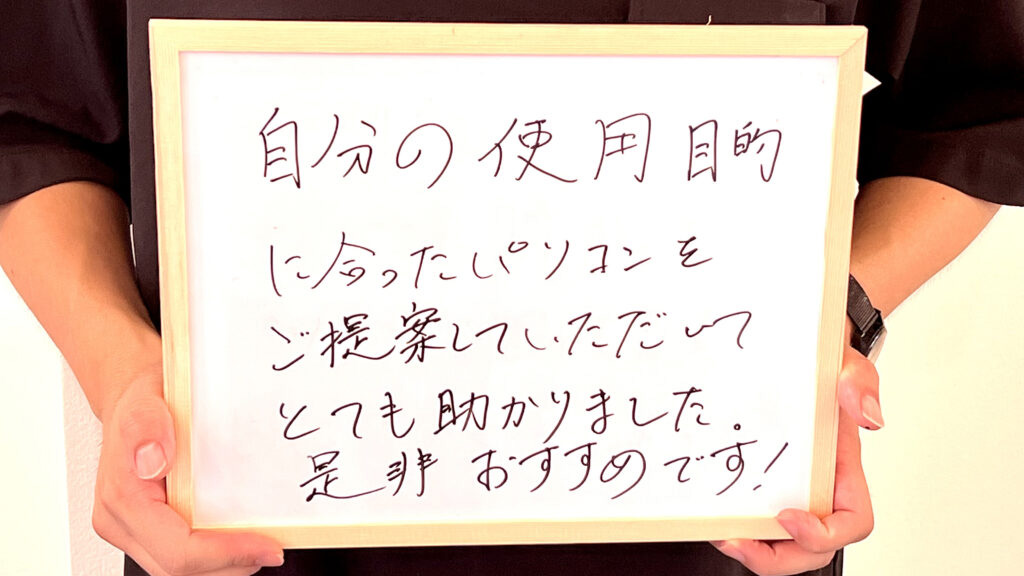 自分の使用目的
に合ったパソコンを
ご提案していただいて
とても助かりました。
是非おすすめです!